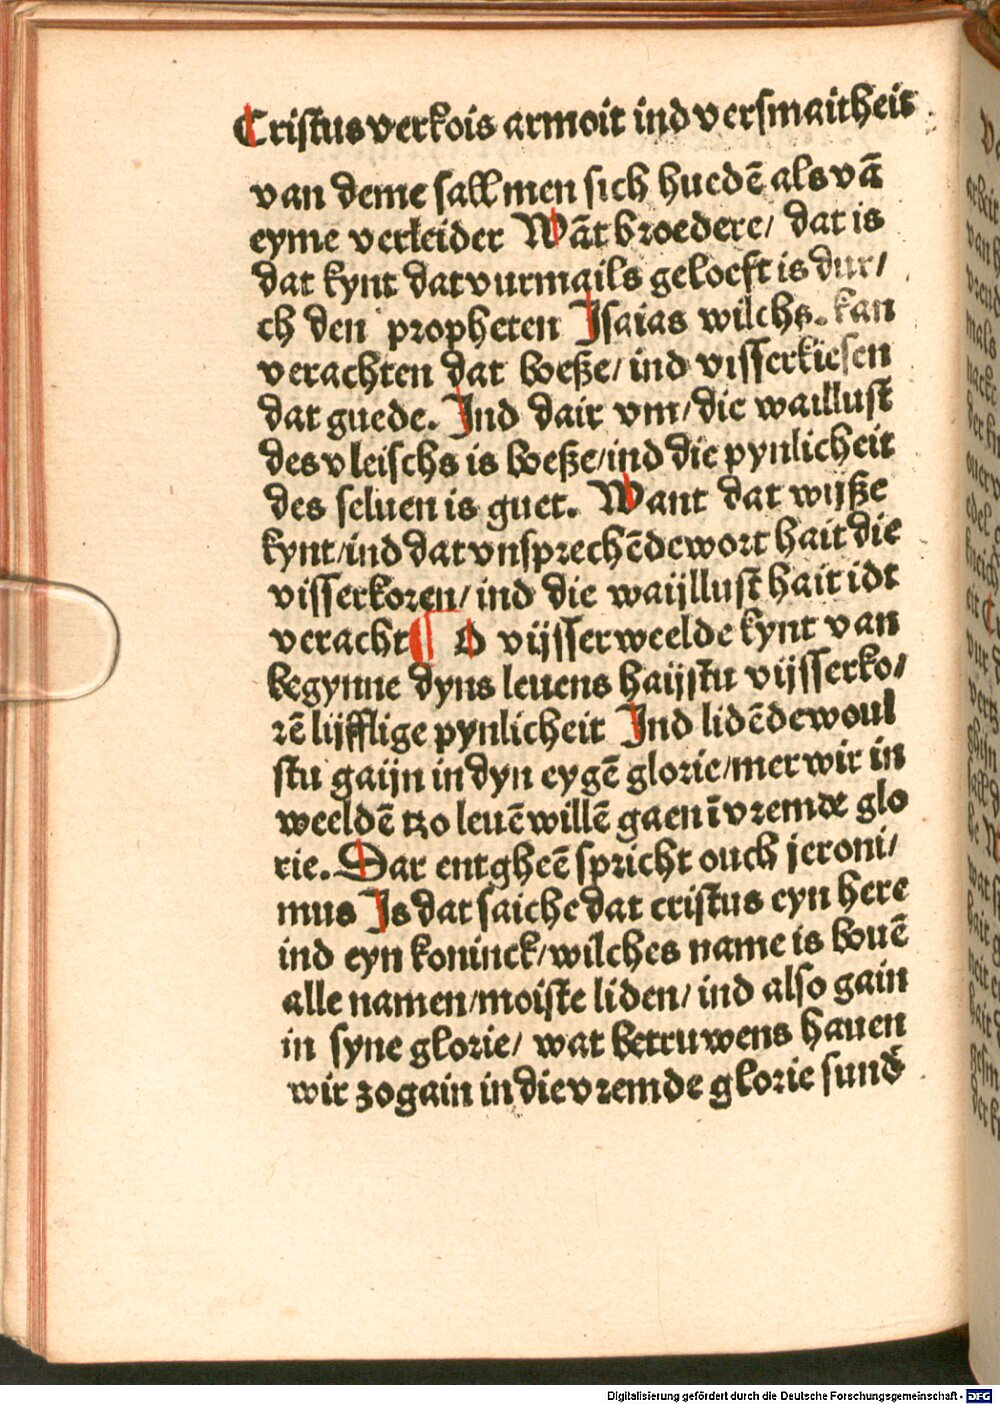 Cristus verkois armoit ind versmaitheit
van deme sall men sich huedē als vā
eyme verleider Wāt broedere/ dat is
dat kynt dat vurmails geloeft is dur/
ch den propheten Isaias wilchs. kan
verachten dat boeße/ ind visserkiesen
dat guede. Ind dair vm/die waillust
des vleischs is boeße/ind die pynlicheit
des seluen is guet. Want dat wijße
kynt/ind dat vnsprechēde wort hait die
visserkoren/ ind die waijllust hait idt
veracht ¶ O vijsser weelde kynt van
begynne dyns leuens haijstu vijsserko/
rē lijfflige pynlicheit Ind lidēde woul
stu gaijn in dyn eygē glorie/mer wir in
weeldē tzo leuē willē gaen ī vremde glo
rie. Dar entgheē spricht ouch jeroni/
mus Is dat saiche dat cristus eyn here
ind eyn koninck/wilches name is bouē
alle namen/moiste liden/ ind also gain
in syne glorie/ wat betruwens hauen
wir zogain in die vremde glorie sund̄
Digitalisierung gefördert durch die Deutsche Forschungsgemeinschaft - DFG